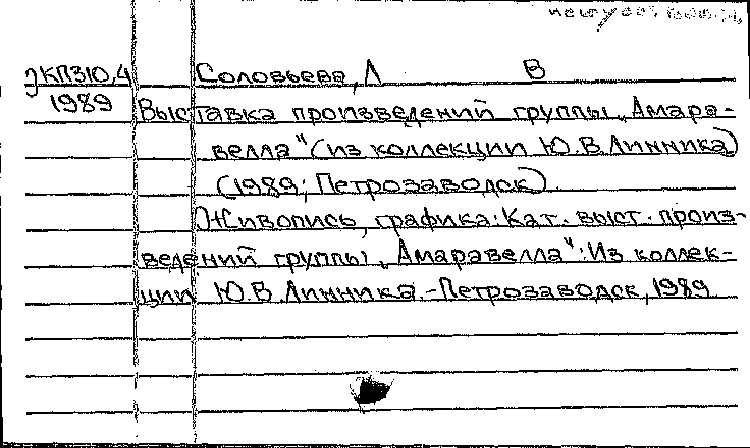 ЭКП310,4 Соловьева, Л В
1989 Выставка произведений группы „Амара-
велла“ (из коллекции Ю.В.Линника)
(1989; Петрозаводск).
Живопись, графика: Кат. выст. произ-
ведений группы „Амаравелла“: Из коллек-
ции Ю.В.Линника.-Петрозаводск, 1989